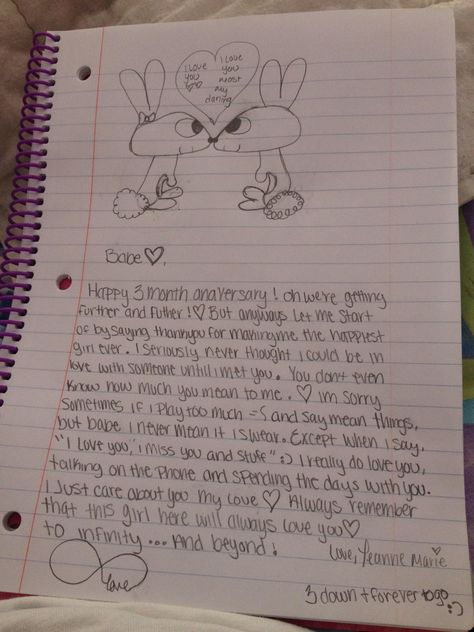 I Love you
I Love
you
most
my
darling
Babe ♡,
Happy 3 month anaversary! oh we're getting
further and futher!♡ But anyways Let me start
of by saying thankyou for making me the happiest
girl ever. I seriously never thought I could be in
love with someone until i met you. You don't even
know how much you mean to me. ♡ im sorry
sometimes if i play too much =S and say mean things,
but babe i never mean it i swear. Except when i say,
"I Love you, i miss you and stuff" :) I really do love you,
talking on the phone and spending the days with you.
I Just care about you my love ♡ Always remember
that this girl here will always love you♡
to infinity... And beyond!
Love, Yeanne Marie
Love
3 down + forever to go :)